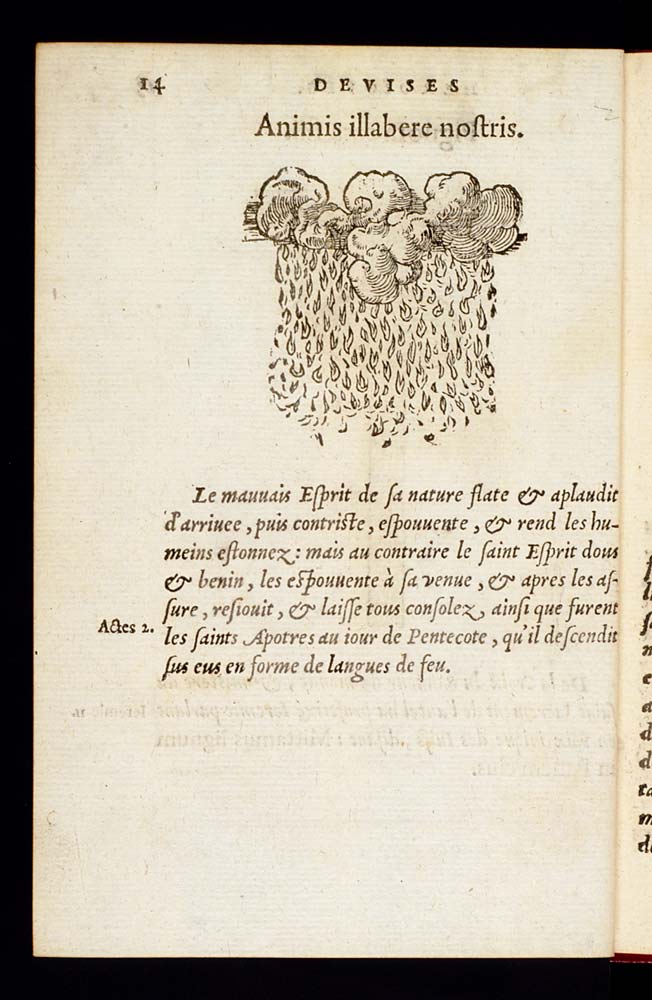 14 DEVISES
Animis illabere noſtris.
Le mauuais Eſprit de ſa nature flate & aplaudit
d'arriuee, puis contriſte, eſpouuente, & rend les hu-
meins eſtonnez: mais au contraire le ſaint Eſprit dous
& benin, les eſpouuente à ſa venue, & apres les aſ-
ſure, reſiouit, & laiſſe tous conſolez, ainſi que furent
Actes 2. les ſaints Apotres au iour de Pentecote, qu'il deſcendit
ſus eus en forme de langues de feu.